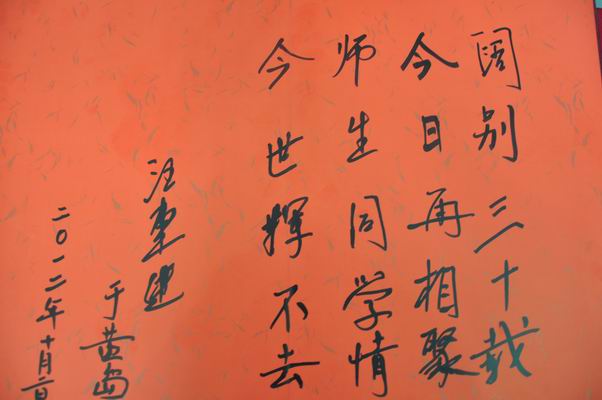 阔别三十载
今日再相聚
师生同学情
今世揮不去
汪
于黄岛
二〇一二年十月二日